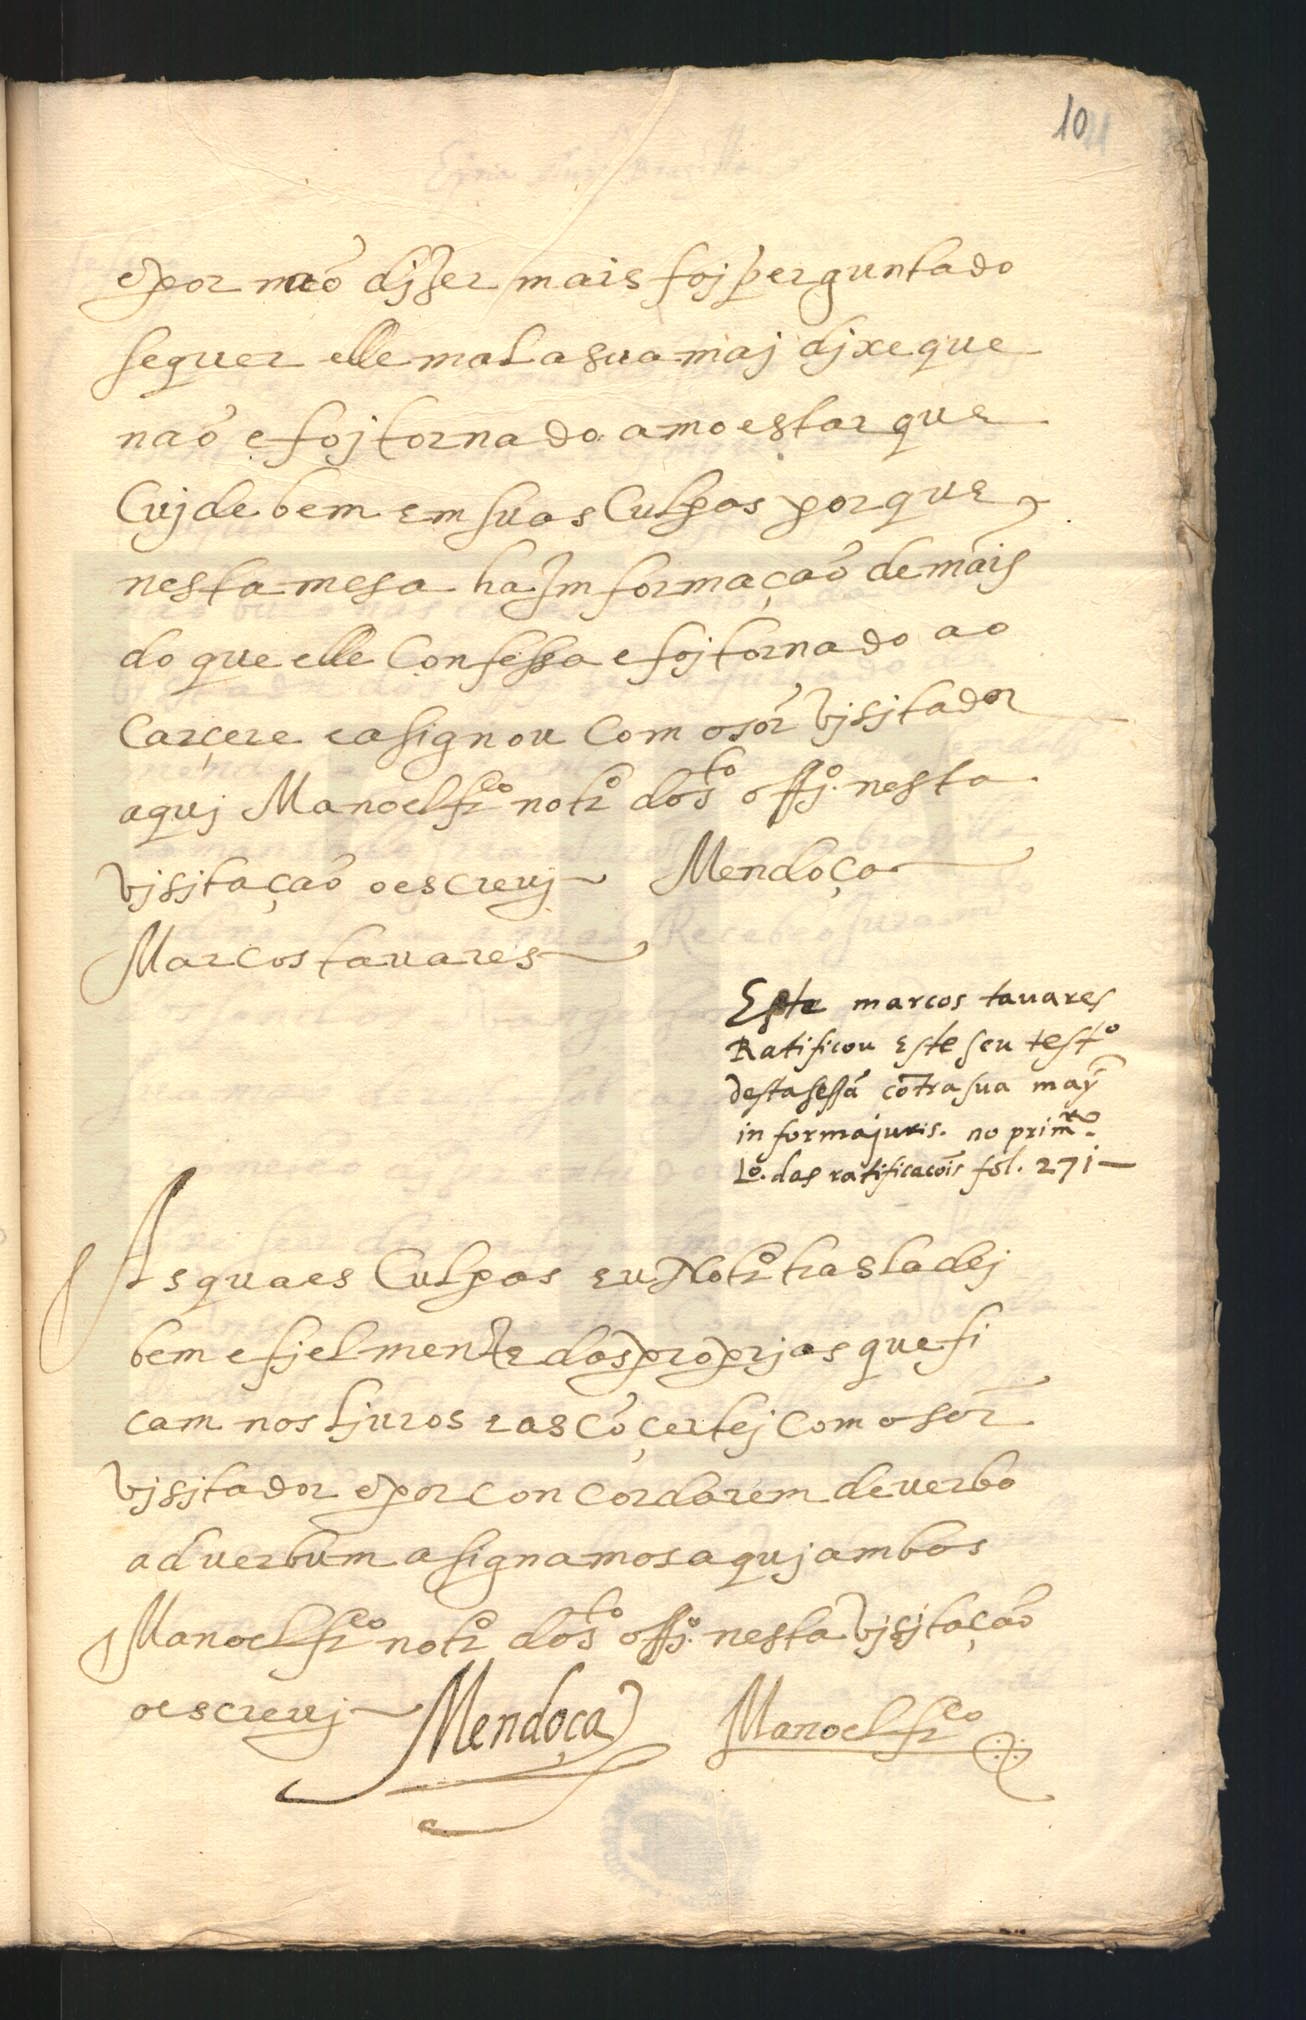 10
e por naõ djzer mais foj perguntado
se quer elle mal a sua maj djxe que
naõ e foj tornado amoestar que
Cujde bem em suas Culpas porque
nesta mesa ha Imformaçaõ de mais
do que elle Confessa e foj tornado ao
Carçere e asignou Com o sõr Vjsjtador
aquj Manoel frco notro do sto offo. nesta
Vjsjtaçaõ o escrevj Mendoça
Marcos tauares
Este marcos tauares
Ratificou este seu testo
desta sessã cõtra sua maỹ
in forma juris. no primro.
Lo. das ratificacoĩs fol. 271
As quaes Culpas eu Notro trasladej
bem e fjelmente das proprjas que fi
cam nos Ljuros e as cõçertej Com o sõr
Vjsjtador e por concordarem de verbo
ad uerbum asignamos aquj ambos
Manoel frco notro do sto offo. nesta Vjsjtaçaõ
o escrevj Mendoça Manoel frco